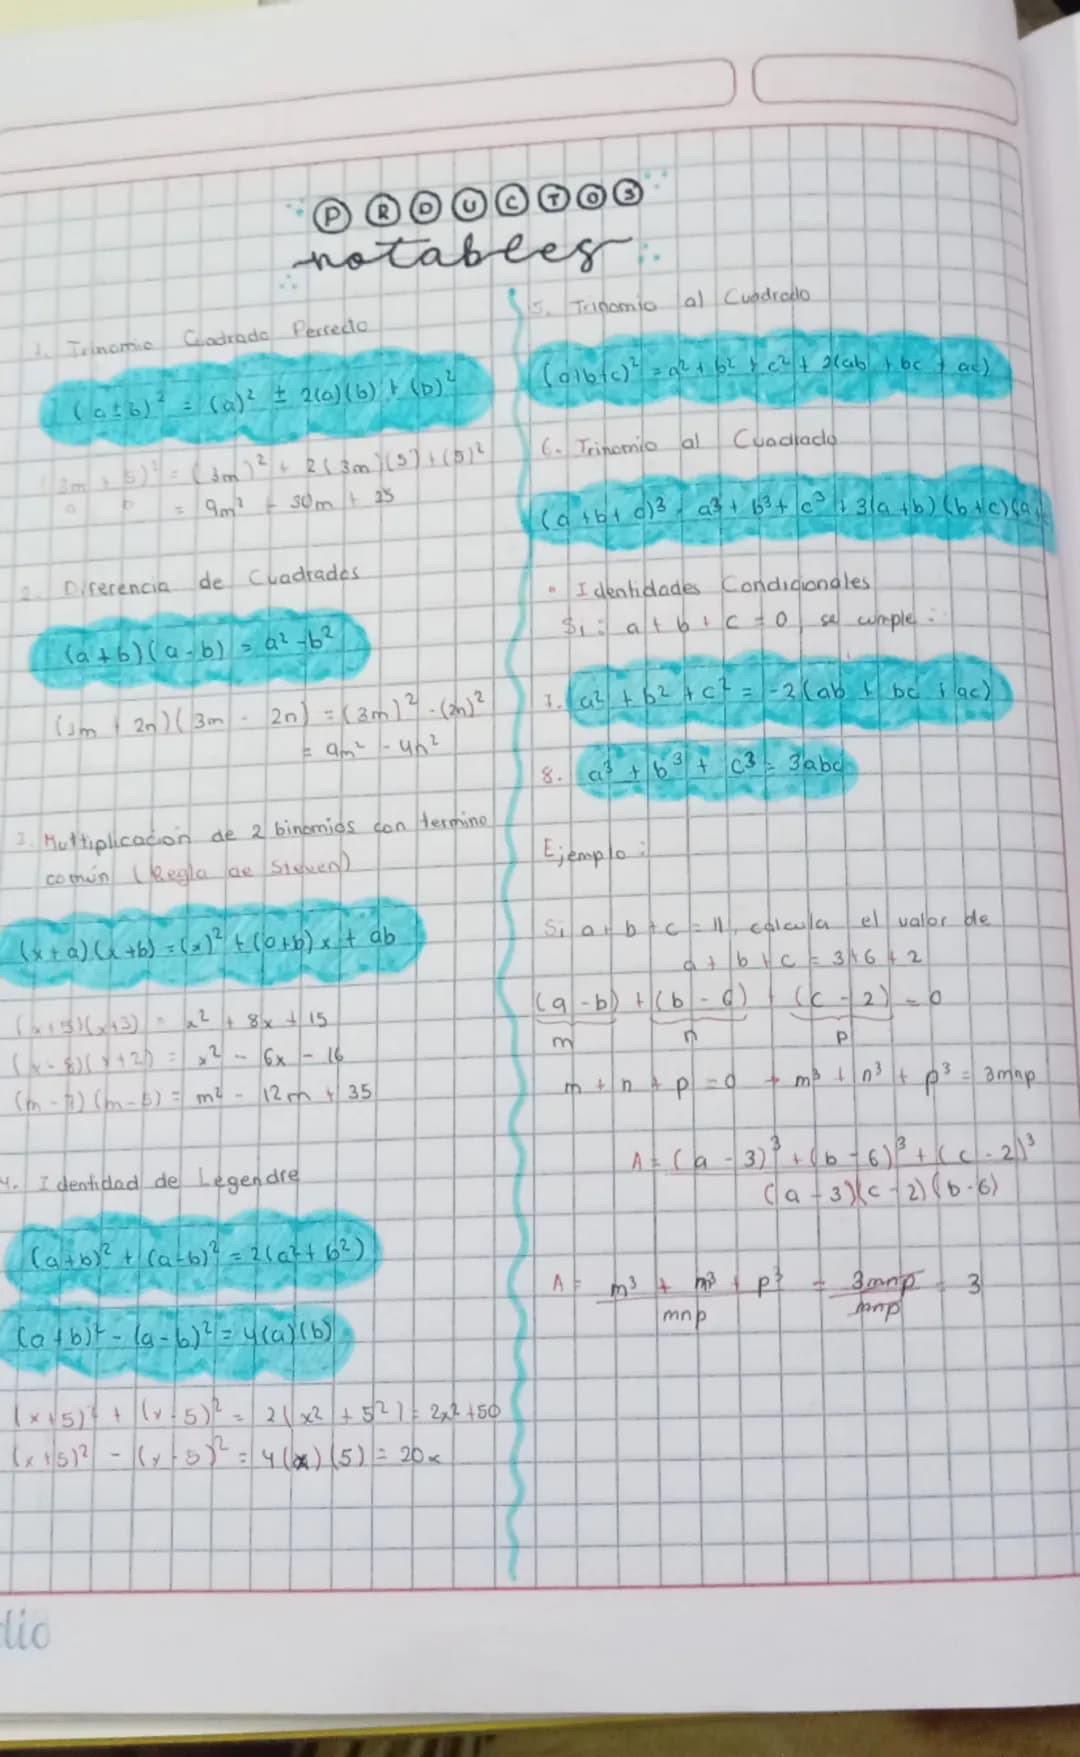 PRODUCTOS
notables
1. Trinomio Cuadrado Perfecto
(a ± b)² = (a)² ± 2(a)(b) + (b)²
(3m + 5)² = (3m)² + 2(3m)(5) + (5)²
a b = 9m² + 30m + 25
2. Diferencia de Cuadrados
(a + b)(a - b) = a² - b²
(3m + 2n)(3m - 2n) = (3m)² - (2n)²
= 9m² - 4n²
3. Multiplicación de 2 binomios con termino
común (Regla de Steven)
(x + a)(x + b) = (x)² + (a+b)x + ab
(x+5)(x+3) = x² + 8x + 15
(x - 8)(x+2) = x² - 6x - 16
(m - 7)(m - 5) = m² - 12m + 35
4. Identidad de Legendre
(a+b)² + (a-b)² = 2(a² + b²)
(a+b)² - (a-b)² = 4(a)(b)
(x+5)² + (x-5)² = 2(x² + 5²) = 2x² + 50
(x+5)² - (x-5)² = 4(x)(5) = 20x
5. Trinomio al Cuadrado
(a+b+c)² = a² + b² + c² + 2(ab + bc + ac)
6. Trinomio al Cuadrado
(a+b+c)³ = a³ + b³ + c³ + 3(a+b)(b+c)(a
• Identidades Condicionales
Si: a + b + c = 0 se cumple:
7. a² + b² + c² = -2(ab + bc + ac)
8. a³ + b³ + c³ = 3abc
Ejemplo:
Si a + b + c = 11, calcula el valor de
a + b + c = 3+6+2
(a - b) + (b - 6) + (c - 2) = 0
m n p
m + n + p = 0 → m³ + n³ + p³ = 3mnp
A = (a - 3)³ + (b - 6)³ + (c - 2)³
(a - 3)(c - 2)(b - 6)
A = m³ + n³ + p³ = 3mnp = 3
mnp mnp
dio